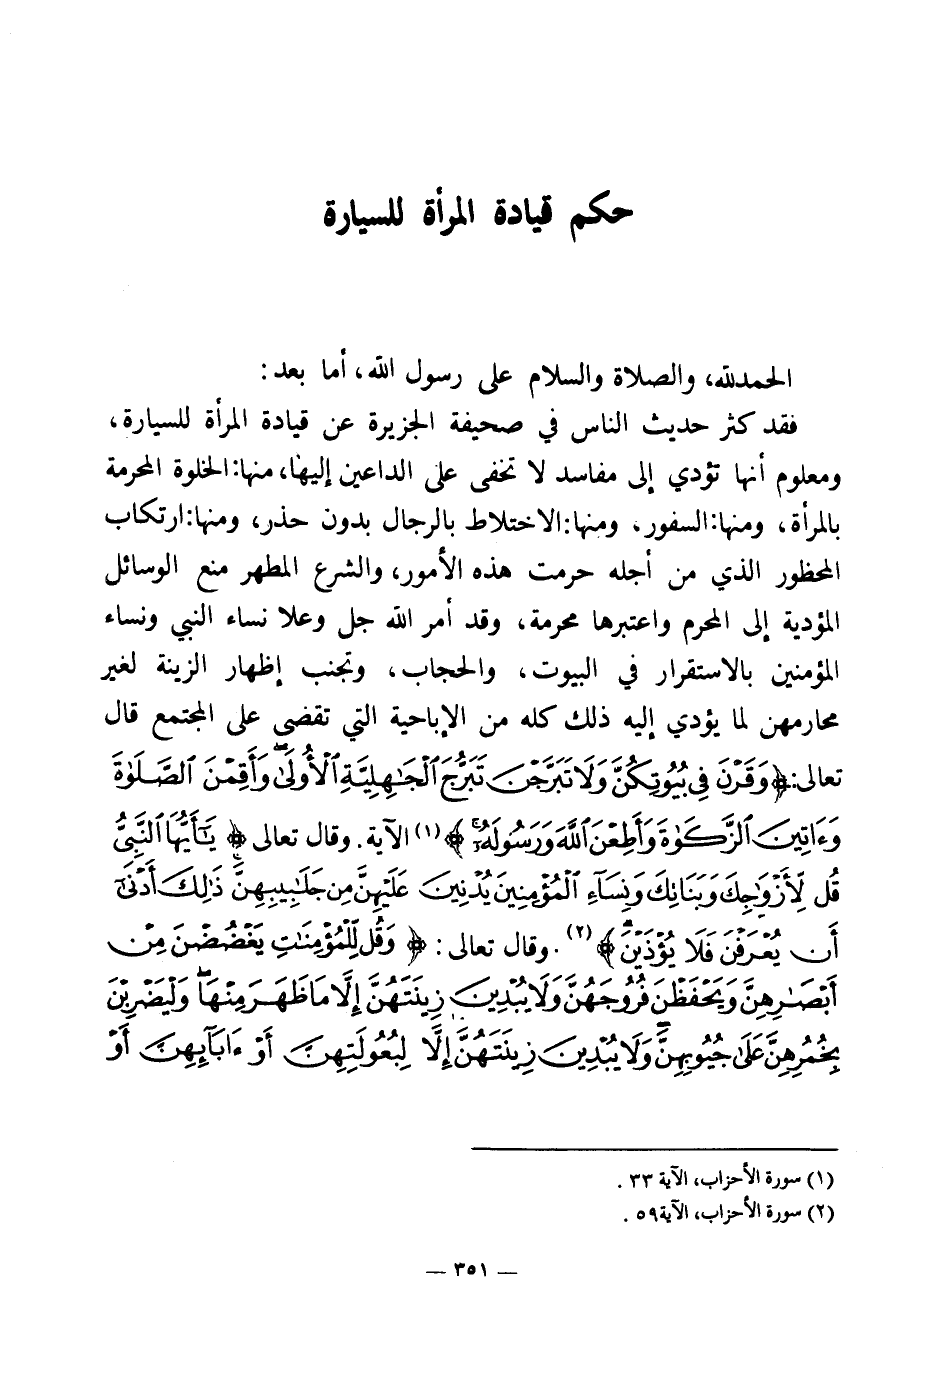 حكم قيادة المرأة للسيارة
الحمدلله، والصلاة والسلام على رسول الله، أما بعد:
فقد كثر حديث الناس في صحيفة الجزيرة عن قيادة المرأة للسيارة،
ومعلوم أنها تؤدي إلى مفاسد لا تخفى على الداعين إليها، منها: الخلوة المحرمة
بالمرأة، ومنها: السفور، ومنها: الاختلاط بالرجال بدون حذر، ومنها: ارتكاب
المحظور الذي من أجله حرمت هذه الأمور، والشرع المطهر منع الوسائل
المؤدية إلى المحرم واعتبرها محرمة، وقد أمر الله جل وعلا نساء النبي ونساء
المؤمنين بالاستقرار في البيوت، والحجاب، وتجنب إظهار الزينة لغير
محارمهن لما يؤدي إليه ذلك كله من الإباحية التي تقضي على المجتمع قال
تعالى: ﴿وَقَرْنَ فِي بُيُوتِكُنَّ وَلَا تَبَرَّجْنَ تَبَرُّجَ ٱلْجَٰهِلِيَّةِ ٱلْأُولَىٰۖ وَأَقِمْنَ ٱلصَّلَوٰةَ
وَءَاتِينَ ٱلزَّكَوٰةَ وَأَطِعْنَ ٱللَّهَ وَرَسُولَهُۥٓ﴾(١) الآية. وقال تعالى ﴿يَٰٓأَيُّهَا ٱلنَّبِيُّ
قُل لِّأَزْوَٰجِكَ وَبَنَاتِكَ وَنِسَآءِ ٱلْمُؤْمِنِينَ يُدْنِينَ عَلَيْهِنَّ مِن جَلَٰبِيبِهِنَّۚ ذَٰلِكَ أَدْنَىٰٓ
أَن يُعْرَفْنَ فَلَا يُؤْذَيْنَۗ﴾(٢). وقال تعالى: ﴿وَقُل لِّلْمُؤْمِنَٰتِ يَغْضُضْنَ مِنْ
أَبْصَٰرِهِنَّ وَيَحْفَظْنَ فُرُوجَهُنَّ وَلَا يُبْدِينَ زِينَتَهُنَّ إِلَّا مَا ظَهَرَ مِنْهَاۖ وَلْيَضْرِبْنَ
بِخُمُرِهِنَّ عَلَىٰ جُيُوبِهِنَّۖ وَلَا يُبْدِينَ زِينَتَهُنَّ إِلَّا لِبُعُولَتِهِنَّ أَوْ ءَابَآئِهِنَّ أَوْ
(١) سورة الأحزاب، الآية ٣٣ .
(٢) سورة الأحزاب، الآية ٥٩ .
— ٣٥١ —